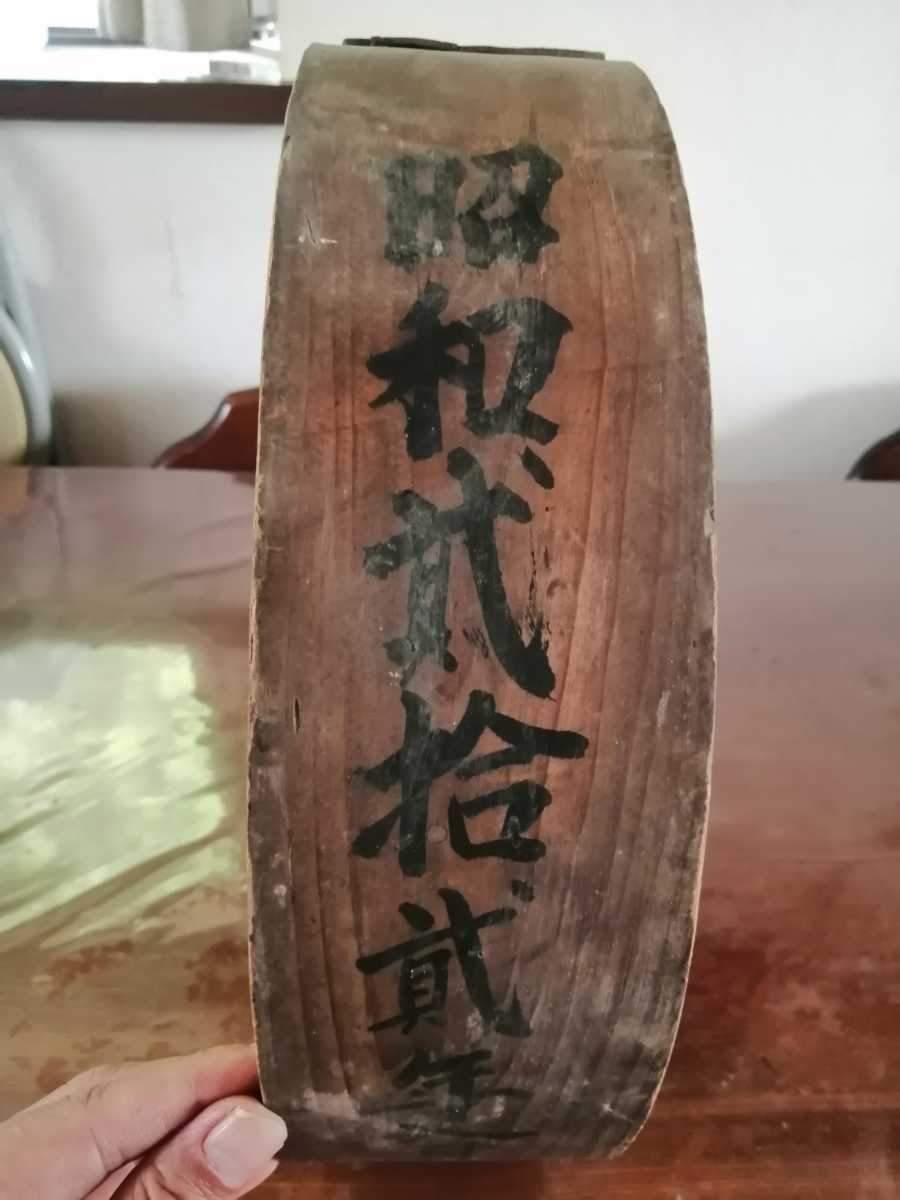 昭和貳拾貳年